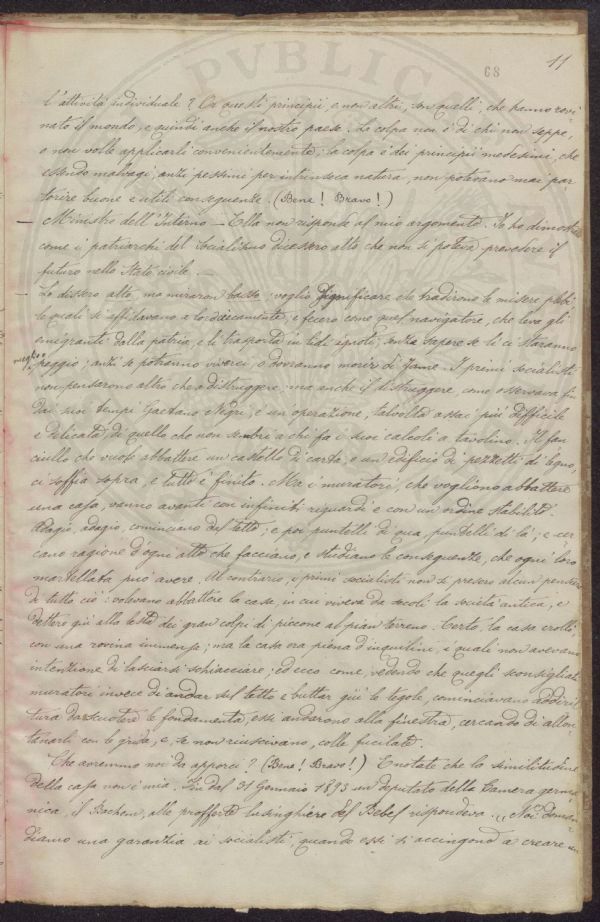 PVBLICA
68
11
l'attività individuale? Or questi principii, e non altri, son quelli, che hanno rovi-
nato il mondo, e quindi anche il nostro paese. La colpa non è di chi non seppe,
o non volle applicarli convenientemente; la colpa è dei principii medesimi, che
essendo malvagi, anzi pessimi per intrinseca natura, non potevano mai par-
torire buone e utili conseguenze. (Bene! Bravo!)
— Ministro dell'Interno — Ella non risponde al mio argomento. Io ho dimostrato
come i patriarchi del Socialismo dicessero alto che non si poteva prevedere il
futuro nello Stato civile. —
— Lo dissero alto, ma miraron basso; voglio significare che tradirono le misere plebi
le quali si affidavano a loro ciecamente; e fecero come quel navigatore, che leva gli
emigranti dalla patria, e li trasporta in lidi ignoti, senza sapere se lì ci staranno
meglio o
peggio; anzi se potranno viverci, o dovranno morir di fame. I primi socialisti
non pensarono altro che a distruggere; ma anche il distruggere, come osservava fin
dai suoi tempi Gaetano Negri, è un'operazione, talvolta assai più difficile
e delicata di quello che non sembri a chi fa i suoi calcoli a tavolino. Il fan-
ciullo che vuole abbattere un castello di carta, o un edificio di pezzetti di legno,
ci soffia sopra, e tutto è finito. Ma i muratori, che vogliono abbattere
una casa, vanno avanti con infiniti riguardi e con un ordine stabilito.
Adagio, adagio, cominciano dal tetto; e poi puntelli di qua, puntelli di là; e cer-
cano ragione d'ogni atto che facciano, e studiano le conseguenze, che ogni loro
martellata può avere. Al contrario, i primi socialisti non si presero alcun pensiero
di tutto ciò: volevano abbattere la casa, in cui viveva da secoli la società antica, e
dettero giù alla lesta dei gran colpi di piccone al pian terreno. Certo, la casa crollò,
con una rovina immensa; ma la casa era piena d'inquilini, i quali non avevano
intenzione di lasciarsi schiacciare; ed ecco come, vedendo che quegli sconsigliati
muratori invece di andar sul tetto e buttar giù le tegole, cominciavano addirit-
tura da scuotere le fondamenta, essi andarono alla finestra, cercando di allon-
tanarli con le grida, e, se non riuscivano, colle fucilate.
Che avremmo noi da opporci? (Bene! Bravo!) E notate che la similitudine
della casa non è mia. Fin dal 31 Gennaio 1893 un deputato della Camera germa-
nica, il Bachem, alle profferte lusinghiere del Bebel rispondeva: „Noi doman-
diamo una garanzia ai socialisti, quando essi si accingono a creare un